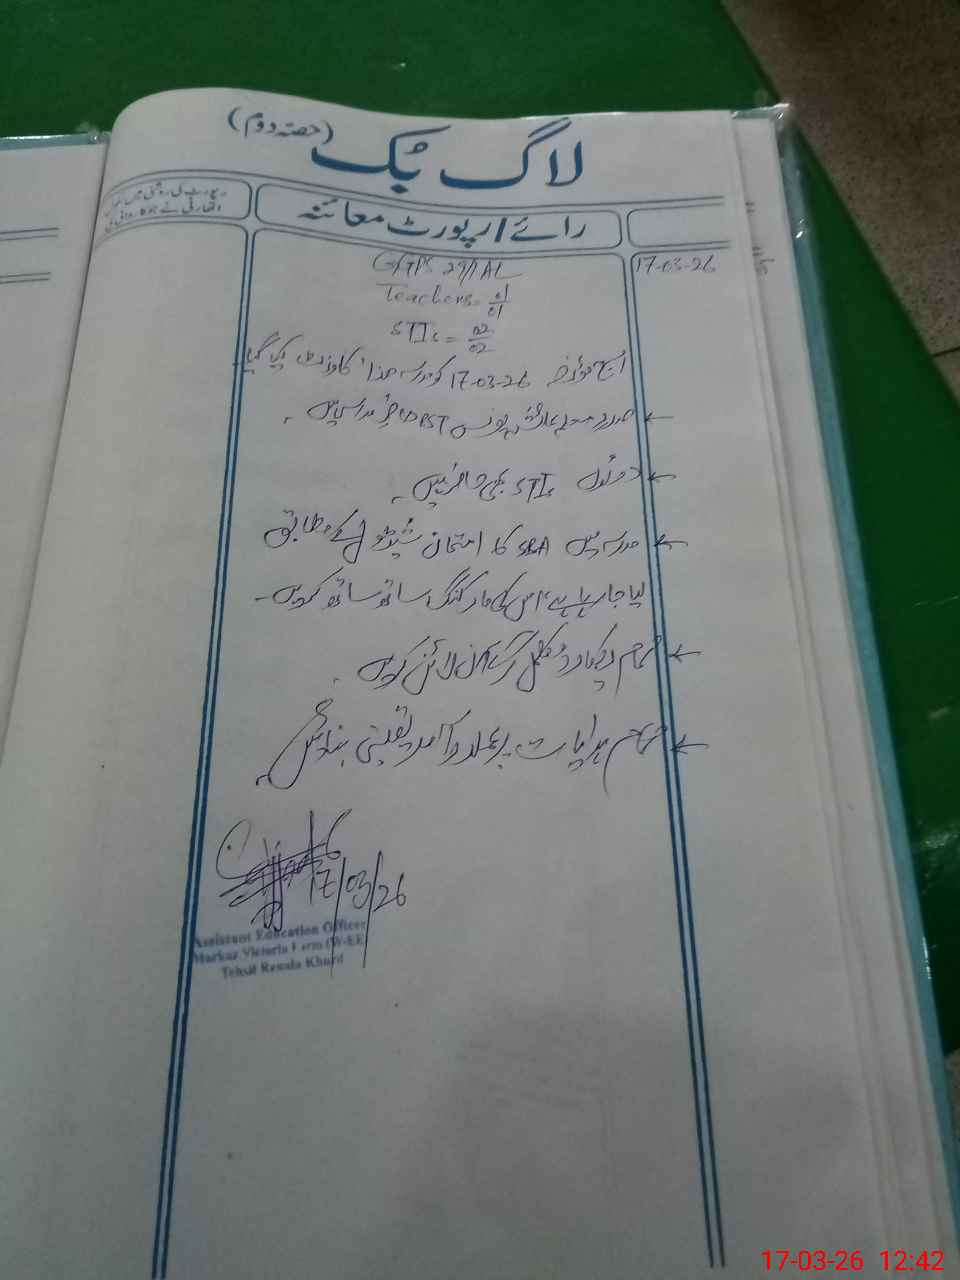 لاگ بک (حصہ دوم)
رائے / رپورٹ معائنہ
رپورٹ کی روشنی میں
17-03-26
GGPS 29/1AL
Teachers = 01/01
STIs = 02/02
آج مورخہ 17-03-26 کو مدرسہ ھذا کا وزٹ کیا گیا
← صدر معلمہ عائشہ یونس PST حاضر مدرسہ ہیں۔
← دونوں STIs بھی حاضر ہیں۔
← مدرسہ میں SBA کا امتحان شیڈول کے مطابق
لیا جا رہا ہے اس کی مارکنگ ساتھ ساتھ کریں۔
← تمام ریکارڈ مکمل کر کے آن لائن کریں۔
← تمام ہدایات پر عملدرآمد یقینی بنائیں۔
17/03/26
Assistant Education Officer
Markaz Victoria Farm (W-EE)
Tehsil Renala Khurd
17-03-26 12:42